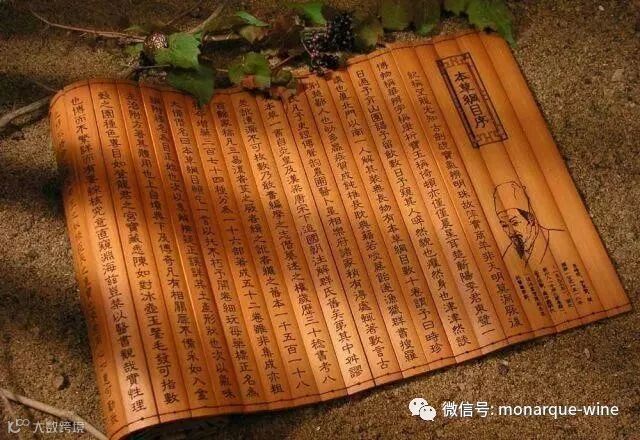 本草綱目序
紀稱望龍光知古劍覘寶氣辨明珠故萍實商羊非天明莫洞厥後
博物稱華辨字稱康析寶玉稱倚頓亦僅僅晨星耳楚蘄陽李君東璧一
日過予弇山園謁予留飲數日予窺其人睟然貌也癯然身也津津然談
議也真北斗以南一人解其裝無長物有本草綱目數十卷謂予曰時珍
荊楚鄙人也幼多羸疾質成鈍椎長耽典籍若啖蔗飴遂漁獵群書搜羅
百氏凡子史經傳聲韻農圃醫卜星相樂府諸家稍有得處輒著數言古
有本草一書自炎皇及漢梁唐宋下迨國朝註解群氏舊矣第其中舛謬
差訛遺漏不可枚數乃敢奮編摩之志僭纂述之權歲歷三十稔書考八
百餘家稿凡三易複者芟之闕者緝之訛者繩之舊本一千五百一十八
種今增藥三百七十四種分為一十六部著成五十二卷雖非集成亦粗
大備僭名曰本草綱目願乞一言以托不朽予開卷細玩每藥標正名為
綱附釋名為目正始也次以集解辨疑正誤詳其土產形狀也次以氣味
主治附方著其體用也上自墳典下及傳奇凡有相關靡不備采如入金
穀之園種色奪目如登龍君之宮寶藏悉陳如對冰壺玉鑒毛髮可指數
也博而不繁詳而有要綜核究竟直窺淵海茲豈禁以醫書覯哉實性理
大数跨境
微信号: monarque-wine